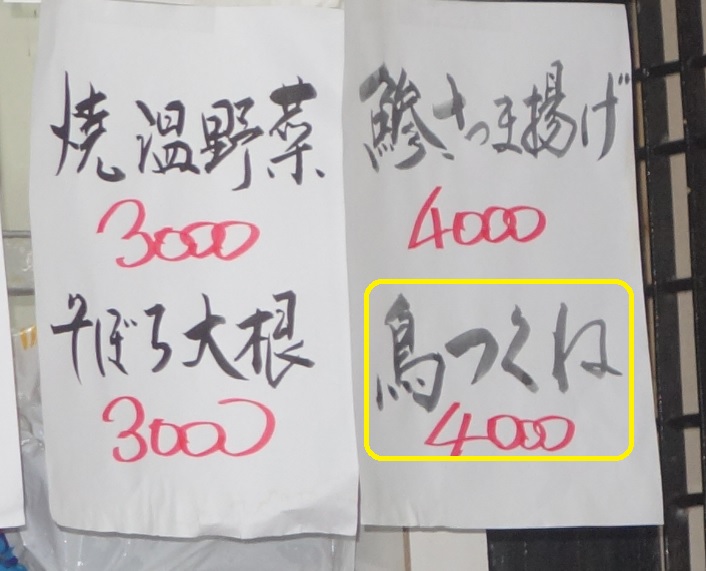 焼温野菜
3000
そぼろ大根
3000
鯵さつま揚げ
4000
鳥つくね
4000